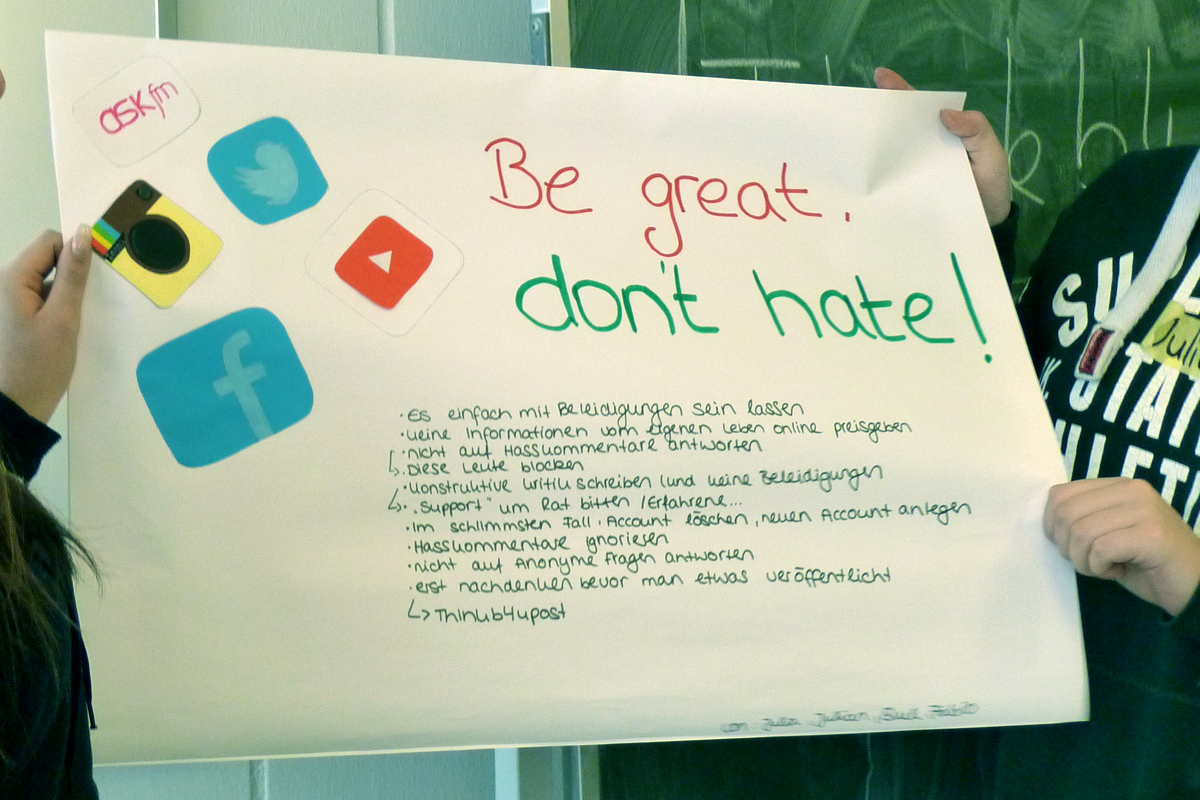 askfm
Be great.
don't hate!
f
· Es einfach mit Beleidigungen sein lassen
· keine Informationen vom eigenen Leben online preisgeben
· nicht auf Hasskommentare antworten
↳ · Diese Leute blocken
· konstruktive Kritik schreiben (und keine Beleidigungen
↳ · „Support" um Rat bitten / Erfahrene...
· im schlimmsten Fall · Account löschen, neuen Account anlegen
· Hasskommentare ignorieren
· nicht auf Anonyme Fragen antworten
· erst nachdenken bevor man etwas veröffentlicht
↳ Thinkb4upost
von